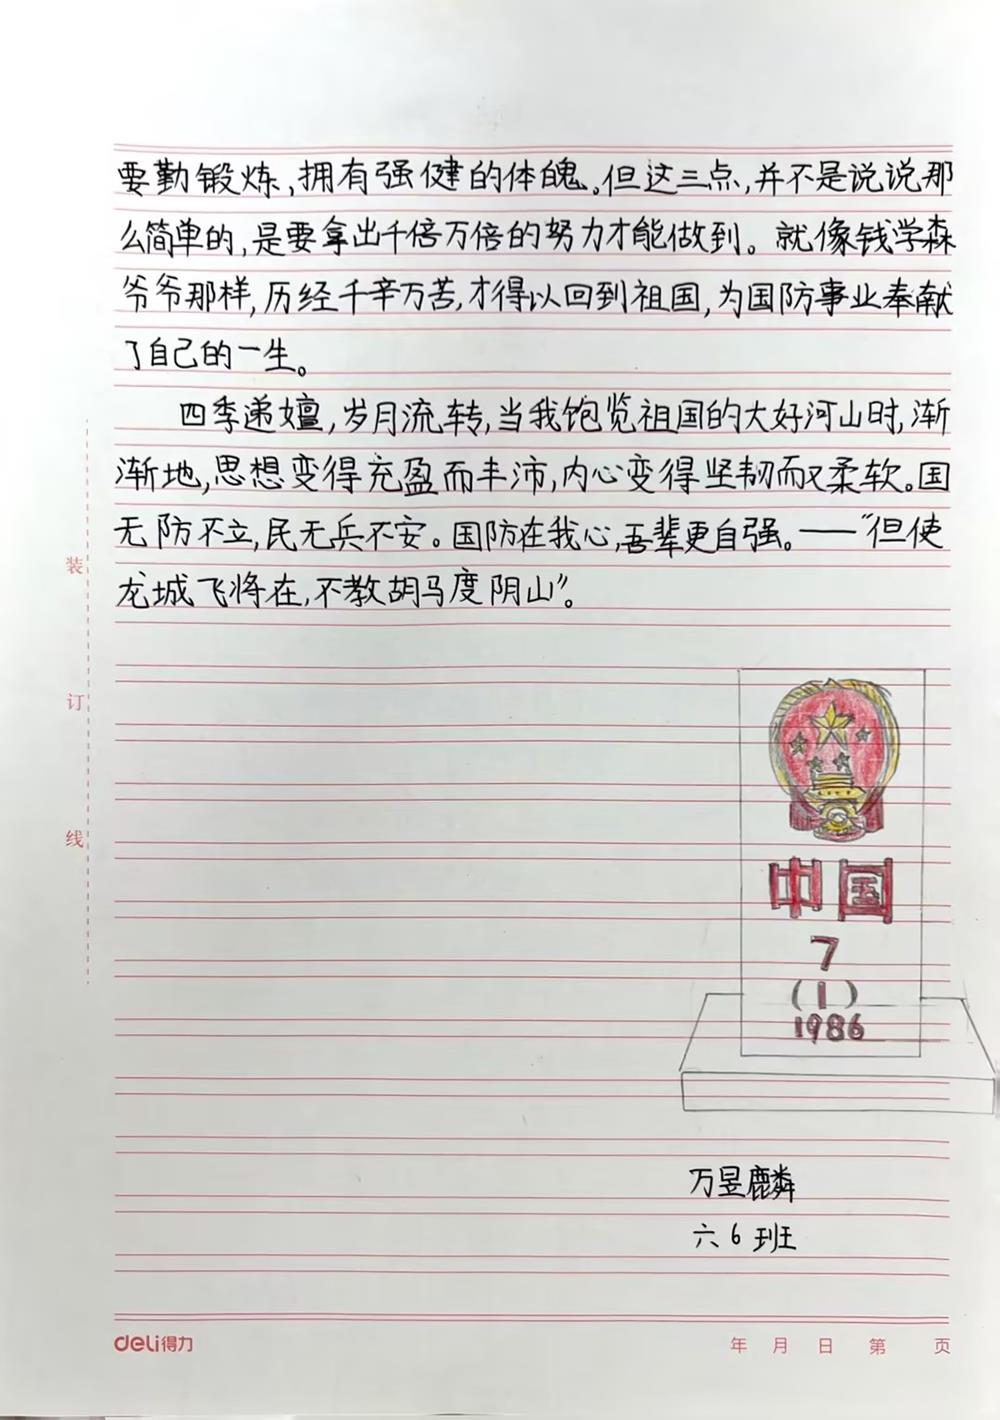 要勤锻炼,拥有强健的体魄。但这三点,并不是说说那
么简单的,是要拿出千倍万倍的努力才能做到。就像钱学森
爷爷那样,历经千辛万苦,才得以回到祖国,为国防事业奉献
了自己的一生。
四季递嬗,岁月流转,当我饱览祖国的大好河山时,渐
渐地,思想变得充盈而丰沛,内心变得坚韧而又柔软。国
无防不立,民无兵不安。国防在我心,吾辈更自强。——“但使
龙城飞将在,不教胡马度阴山”。
装
订
线
中国
7
(1)
1986
万昱麟
六6班
deli得力
年 月 日 第 页